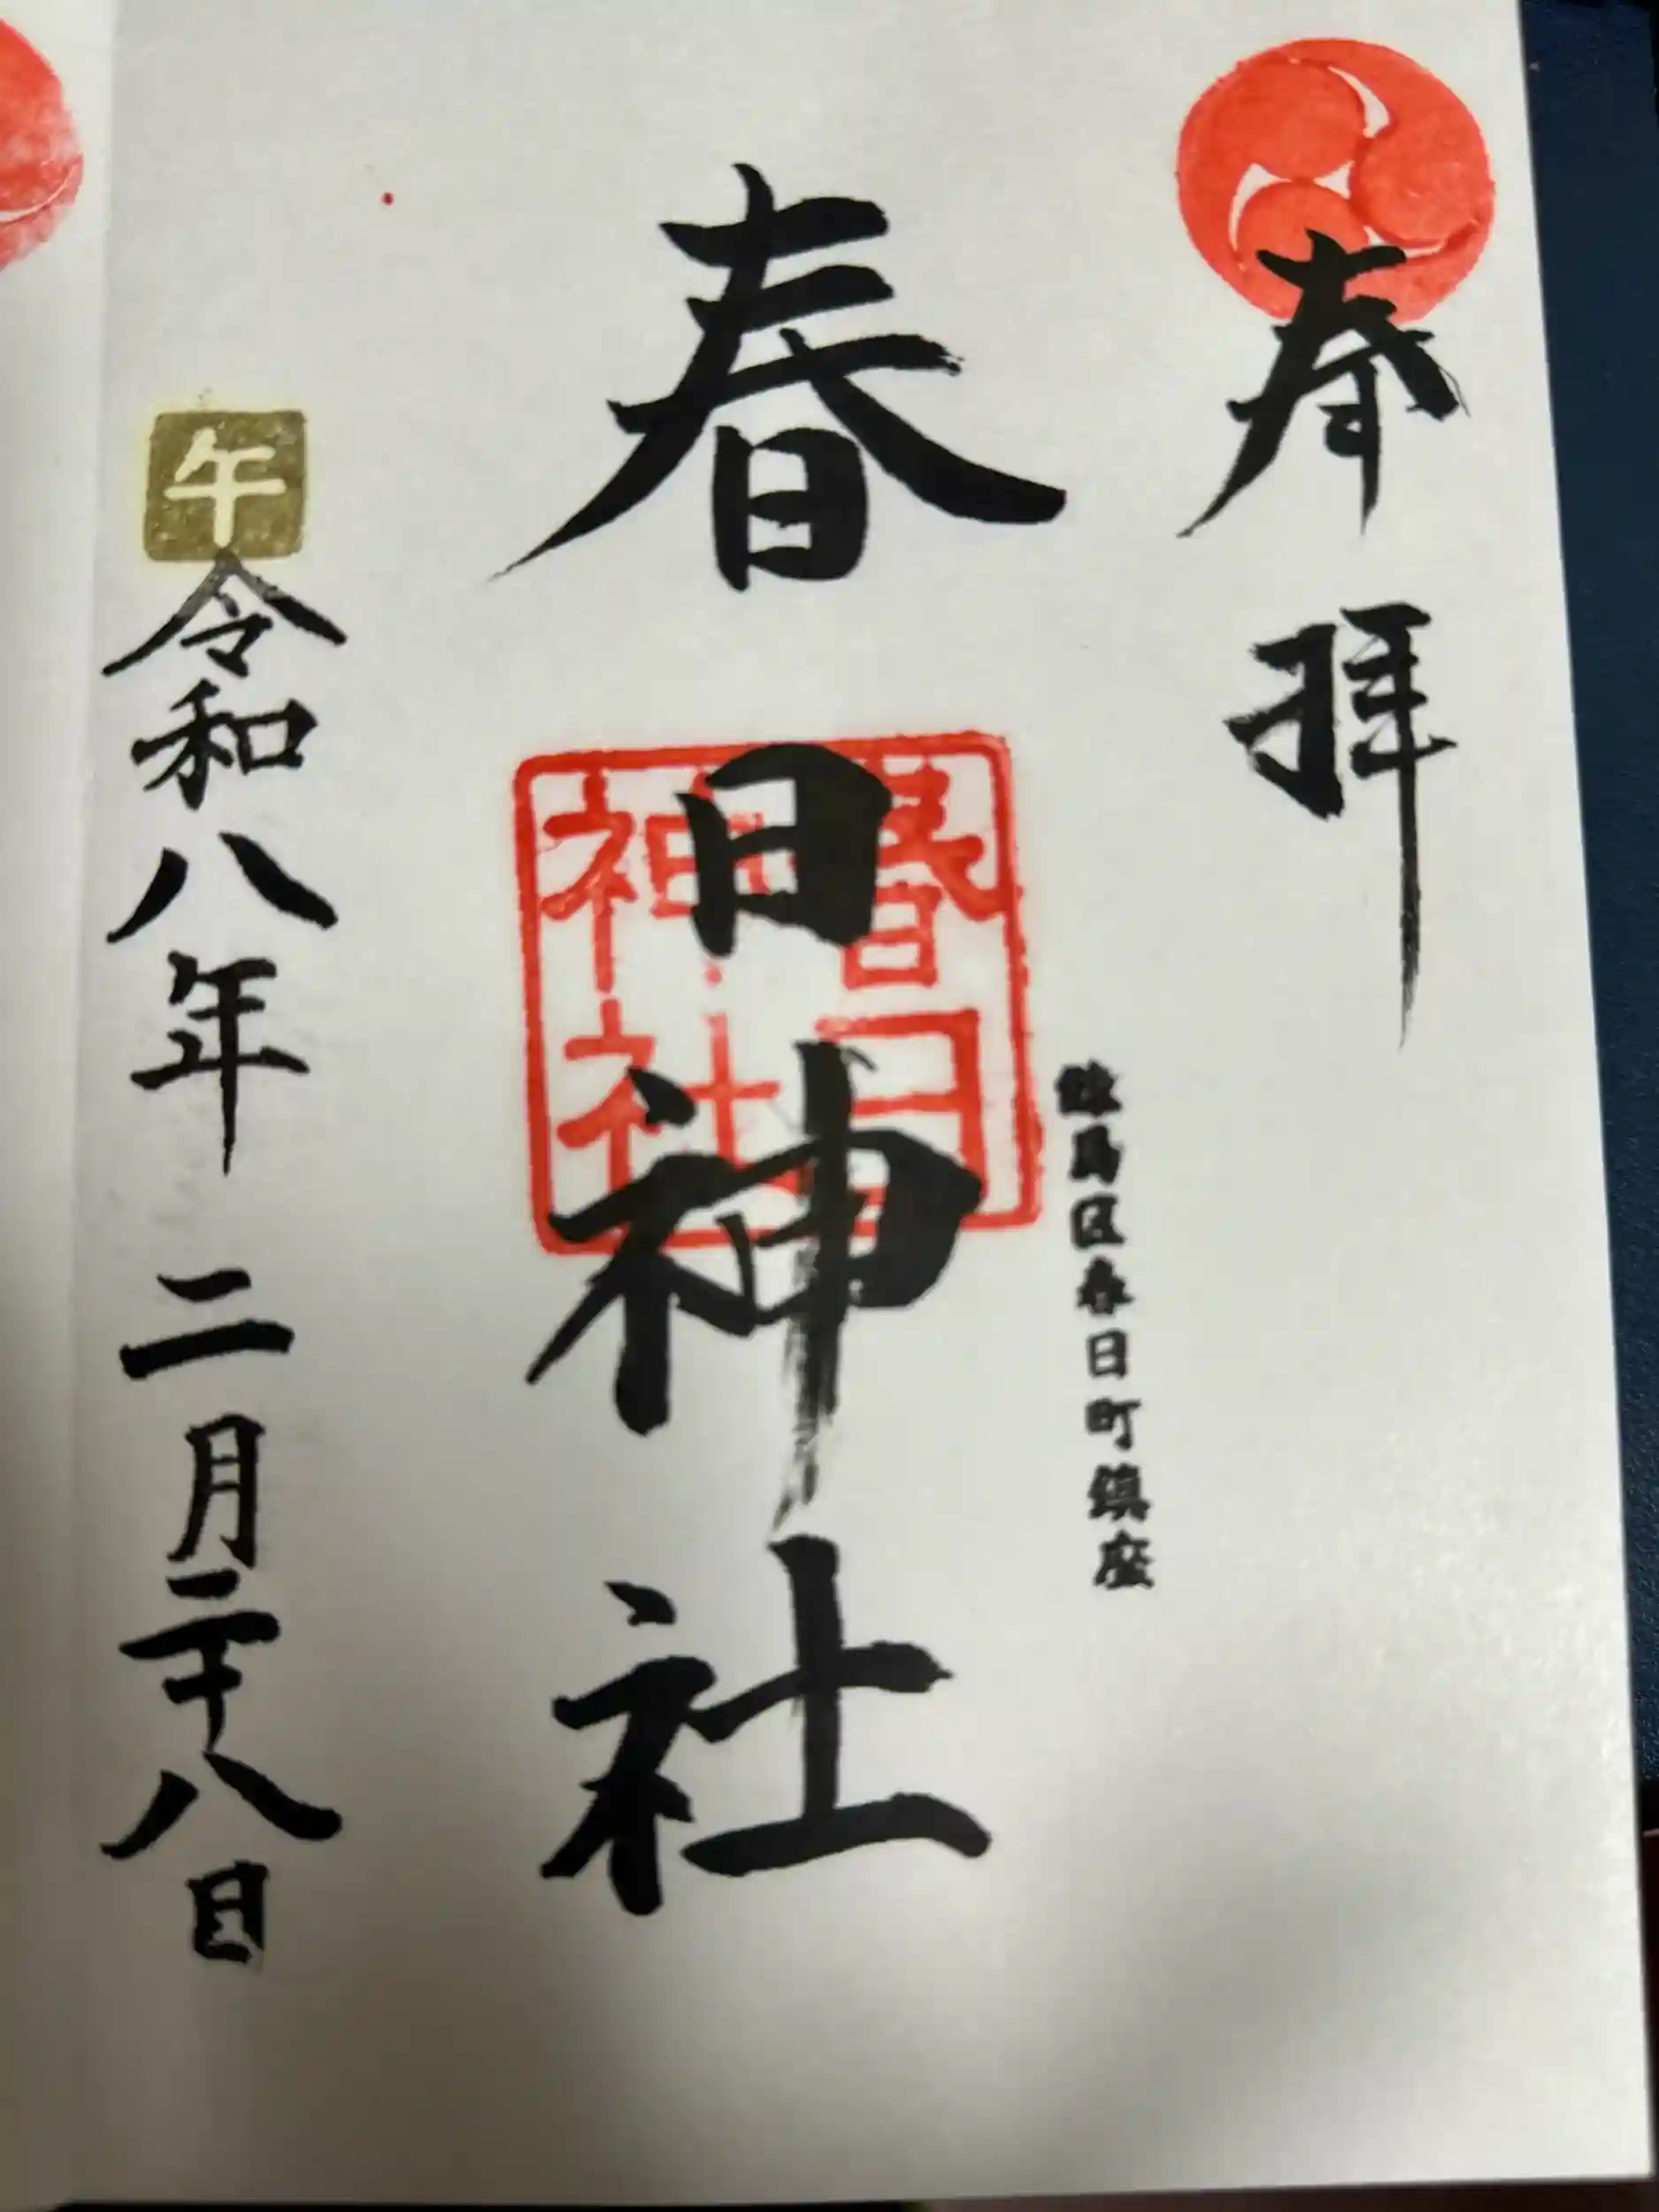 奉拝
練馬区春日町鎮座
春日神社
春日
神社
午
令和八年二月二十八日